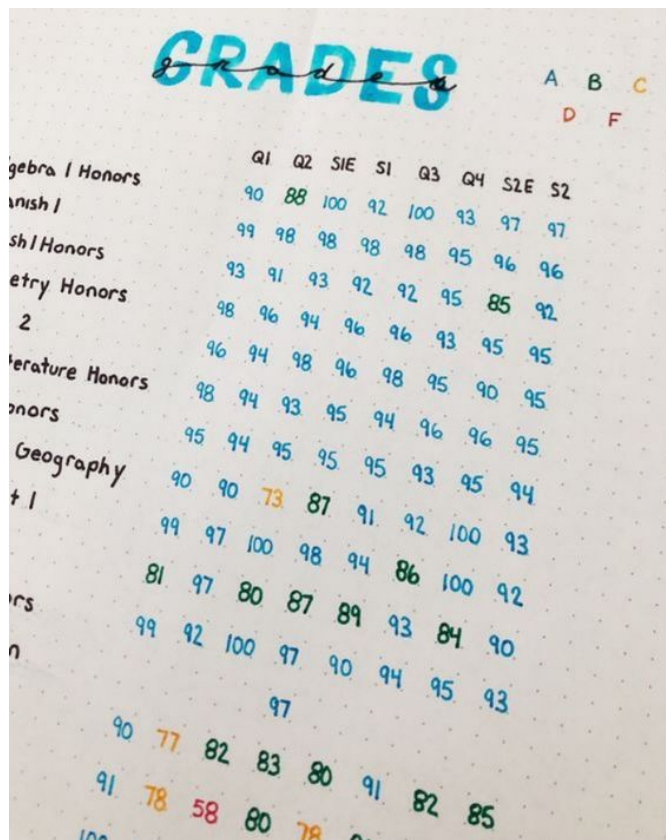 GRADES
grades
A B C
D F
Q1 Q2 S1E S1 Q3 Q4 S2E S2
gebra 1 Honors 90 88 100 92 100 93 97 97
nish 1 99 98 98 98 98 95 96 96
sh 1 Honors 93 91 93 92 92 95 85 92
etry Honors 98 96 94 96 96 93 95 95
2 96 94 98 96 98 95 90 95
terature Honors 98 94 93 95 94 96 96 95
onors 95 94 95 95 95 93 95 94
Geography 90 90 73 87 91 92 100 93
t 1 99 97 100 98 94 86 100 92
81 97 80 87 89 93 84 90
rs 99 92 100 97 90 94 95 93
n 97
90 77 82 83 80 91 82 85
91 78 58 80 78
100